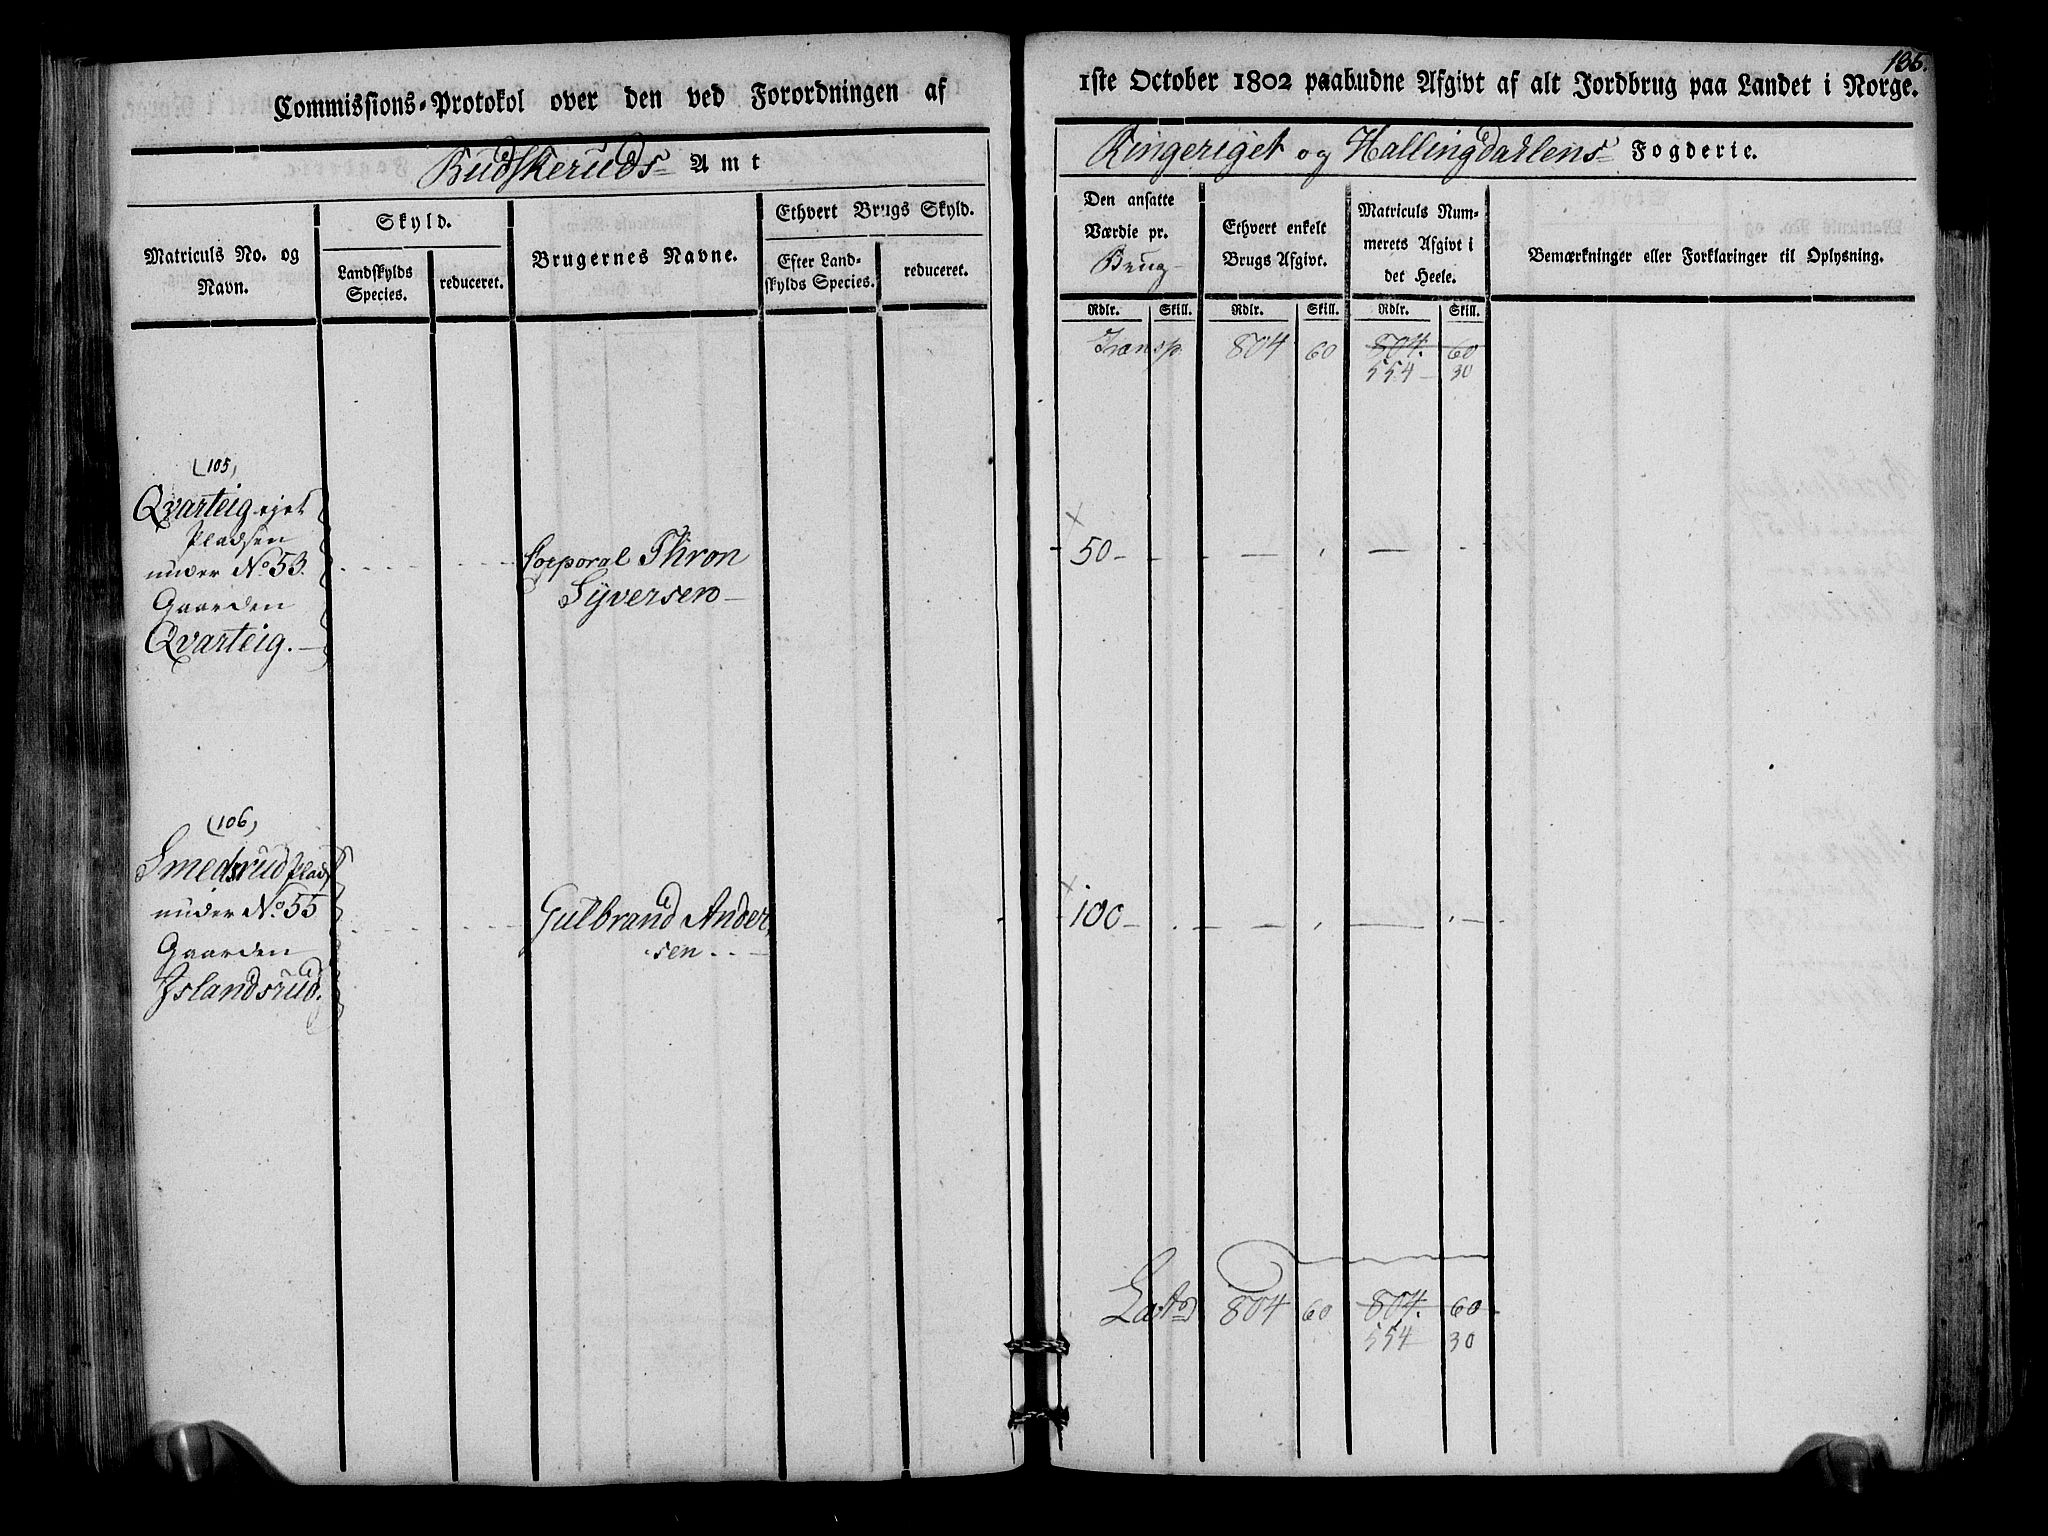 Commissions-Protokol over den ved Forordningen af
Budskeruds Amt
Matriculs No. og
Navn.
Skyld.
Landskylds
Species.
reduceret.
Brugernes Navne.
Ethvert Brugs Skyld.
Efter Land-
skylds Species.
reduceret.
(105)
Qvarteig ejet
Pladsen
under No 53.
Gaarden
Qvarteig.
Corporal Thron
Syversen
(106)
Smedsrud Plads
under No 55
Gaarden
Islandsrud.
Gulbrand Ander
sen
186.
1ste October 1802 paabudne Afgivt af alt Jordbrug paa Landet i Norge.
Ringeriget og Hallingdahlens Fogderie.
Den ansatte
Værdie pr.
Brug
Ethvert enkelt
Brugs Afgivt.
Matriculs Num-
merets Afgivt i
det Heele.
Bemærkninger eller Forklaringer til Oplysning.
Rdlr. Skill. Rdlr. Skill. Rdlr. Skill.
Transp. 804 60 804. 60
554 30
× 50
× 100
Lates 804 60 804. 60
554 30